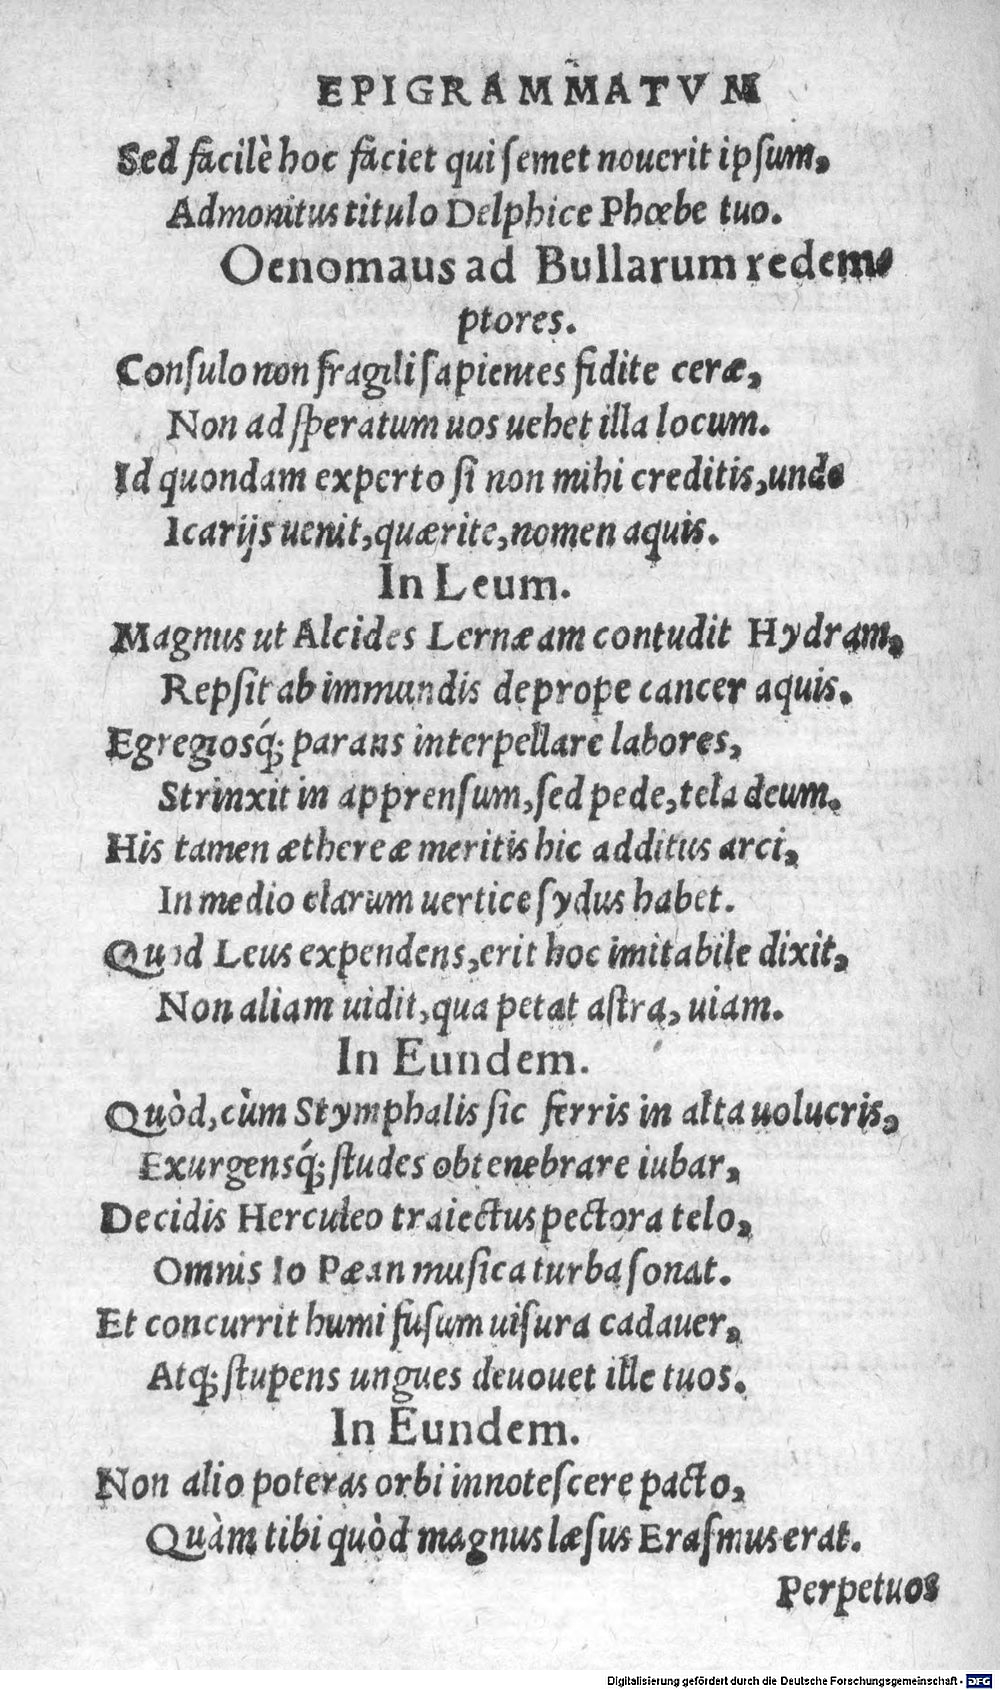 EPIGRAMMATVM
Sed facilè hoc faciet qui ſemet nouerit ipſum,
Admonitus titulo Delphice Phœbe tuo.
Oenomaus ad Bullarum redem-
ptores.
Conſulo non fragili ſapientes fidite ceræ,
Non ad ſperatum uos uehet illa locum.
Id quondam experto ſi non mihi creditis, unde
Icarijs uenit, quærite, nomen aquis.
In Leum.
Magnus ut Alcides Lernæam contudit Hydram,
Repſit ab immundis deprope cancer aquis.
Egregiosq́; parans interpellare labores,
Strinxit in apprenſum, ſed pede, tela deum.
His tamen æthereæ meritis hic additus arci,
In medio clarum uertice ſydus habet.
Quod Leus expendens, erit hoc imitabile dixit,
Non aliam uidit, qua petat aſtra, uiam.
In Eundem.
Quòd, cùm Stymphalis ſic ferris in alta uolucris,
Exurgensq́; ſtudes obtenebrare iubar,
Decidis Herculeo traiectus pectora telo,
Omnis Io Pæan muſica turba ſonat.
Et concurrit humi fuſum uiſura cadauer,
Atq; ſtupens ungues deuouet ille tuos.
In Eundem.
Non alio poteras orbi innoteſcere pacto,
Quàm tibi quòd magnus læſus Eraſmus erat.
Perpetuos
Digitalisierung gefördert durch die Deutsche Forschungsgemeinschaft - DFG